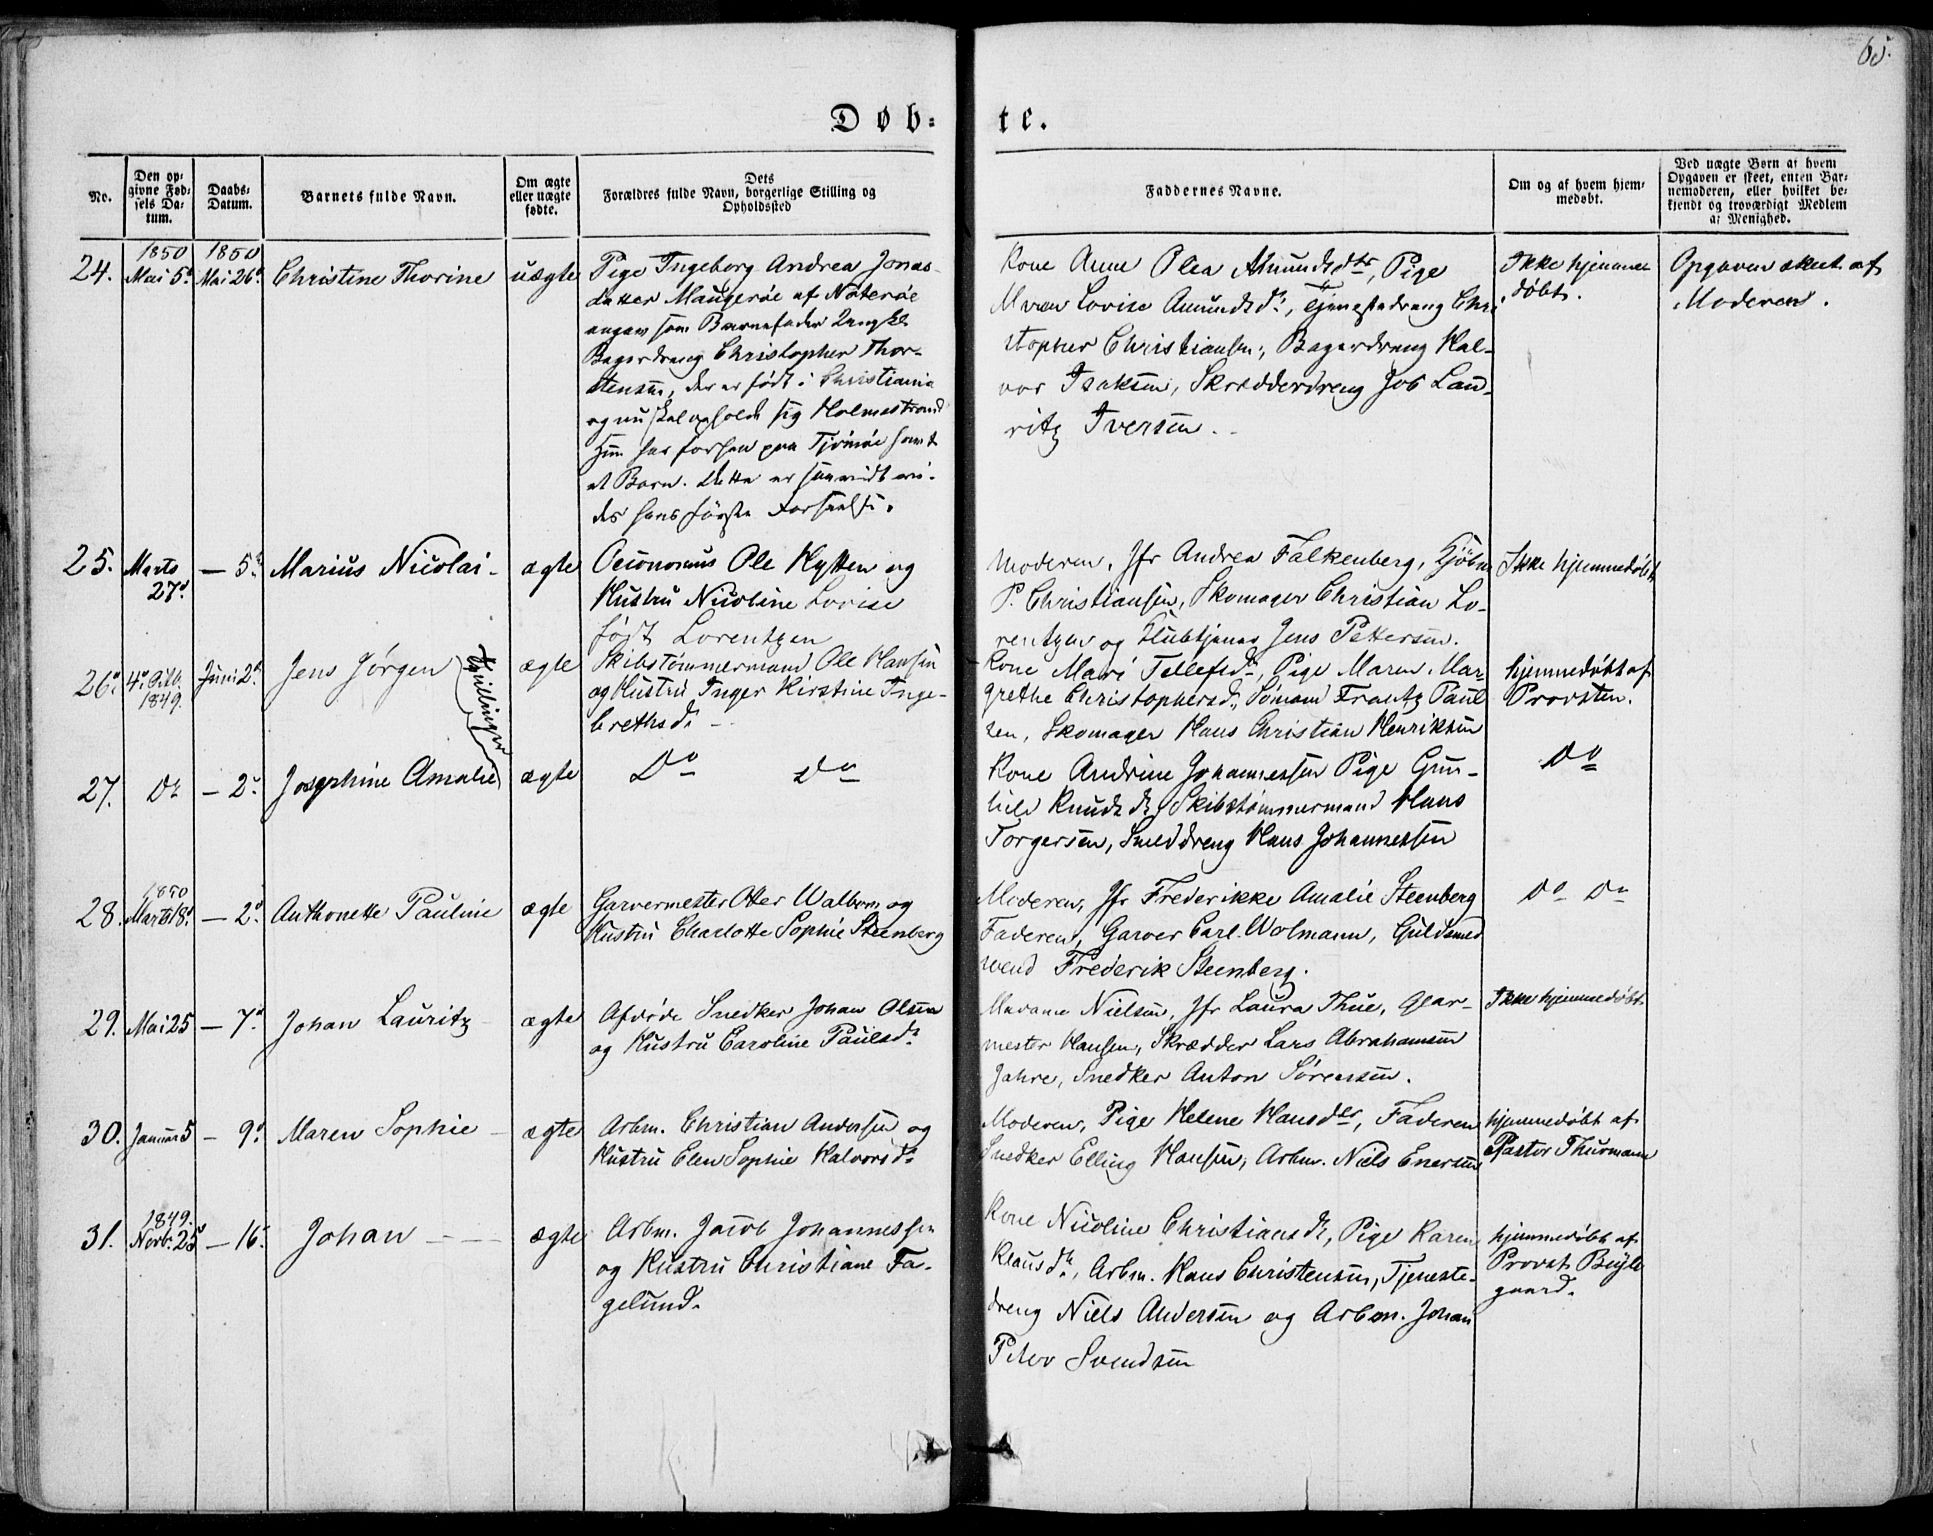 65.
Døb-
te.
No.
Den op-
givne Fød-
sels Da-
tum.
Daabs-
Datum.
Barnets fulde Navn.
Om ægte
eller uægte
fødte.
Dets
Forældres fulde Navn, borgerlige Stilling og
Opholdssted
Faddernes Navne.
Om og af hvem hjem-
medøbt.
Ved uægte Børn af hvem
Opgaven er skeet, enten Bar-
nemoderen, eller hvilket be-
kjendt og troværdigt Medlem
af Menighed.
24.
1850
Mai 5d
1850
Mai 26d
Christine Thorine
uægte
Pige Ingeborg Andrea Jonas-
datter Maugerøe af Nøterøe
angav som Barnefader
Bagerdreng Christopher Thor-
stensen, der er født i Christiania
og nu skal opholde sig Holmestrand
Hun har forhen paa Tjømøe havt
et Barn. Dette er saavidt vi-
des hans første Forseelse.
Kone Anne Olea Amundsdtr, Pige
Maren Lovise Amundsdr, Tjenestedreng Chri
stopher Christiansen, Bagerdreng Hal-
vor Isaksen, Skrædderdreng Job Lau-
ritz Iversen.
Ikke hjemme
døbt.
Opgaven skeet af
Moderen.
25.
Marts
27d
— 5d
Marius Nicolai -
ægte
Oeconomus Ole Hytten og
Hustru Nicoline Lovise
født Lorentzen
Moderen, Jfr Andrea Falkenberg, Kjøbm
P. Christiansen, Skomager Christian Lo-
rentzen og Klubtjener Jens Pettersen.
Ikke hjemmedøbt
26.
4d Octb.
1849.
Juni 2d
Jens Jørgen
Tvillinger
ægte
Skibstømmermand Ole Hansen
og Hustru Inger Kirstine Inge-
brethsdr -
Kone Mari Tellefsdr, Pige Maren Mar
grethe Christophersdr, Sømand Frantz Paul
sen, Skomager Hans Christian Henriksen
hjemmedøbt af
Provsten.
27.
Do
— 2d
Josephine Amalie
ægte
Do Do
Kone Andrine Johannessen Pige Gun-
hild Knudsdr, Skibstømmermand Hans
Torgersen, Smeddreng Hans Johannessen
Do
28.
1850
Marts 18d
— 2d
Anthonette Pauline
ægte
Garvermester Otter Walbom og
Hustru Charlotte Sophie Steenberg
Moderen, Jfr Frederikke Amalie Steenberg
Faderen, Garver Carl Wolmann, Guldsmed
svend Frederik Steenberg.
Do Do
29.
Mai 25
— 7d
Johan Lauritz
ægte
Afdøde Snedker Johan Olsen
og Hustru Caroline Paulsdr
Madame Nielsen, Jfr Laura Thue, Glar-
mester Hansen, Skrædder Lars Abrahamsen
Jahre, Snedker Anton Sørensen.
Ikke hjemmedøbt
30.
Januar 5
— 9d
Maren Sophie -
ægte
Arbm. Christian Andersen og
Hustru Elen Sophie Halvorsdr
Moderen, Pige Helene Hansdtr, Faderen
Snedker Elling Hansen, Arbm. Niels Enersen
hjemmedøbt af
Pastor Thurmann
31.
1849.
Novb. 25
— 16d
Johan - - -
ægte
Arbm. Jacob Johannessen
og Hustru Christiane Fa-
gelund.
Kone Nicoline Christiansdr, Pige Karen
Klausdr, Arbm. Hans Christensen, Tjeneste-
dreng Niels Andersen og Arbm. Johan
Peter Svendsen
hjemmedøbt af
Provst Bugle
gaard.